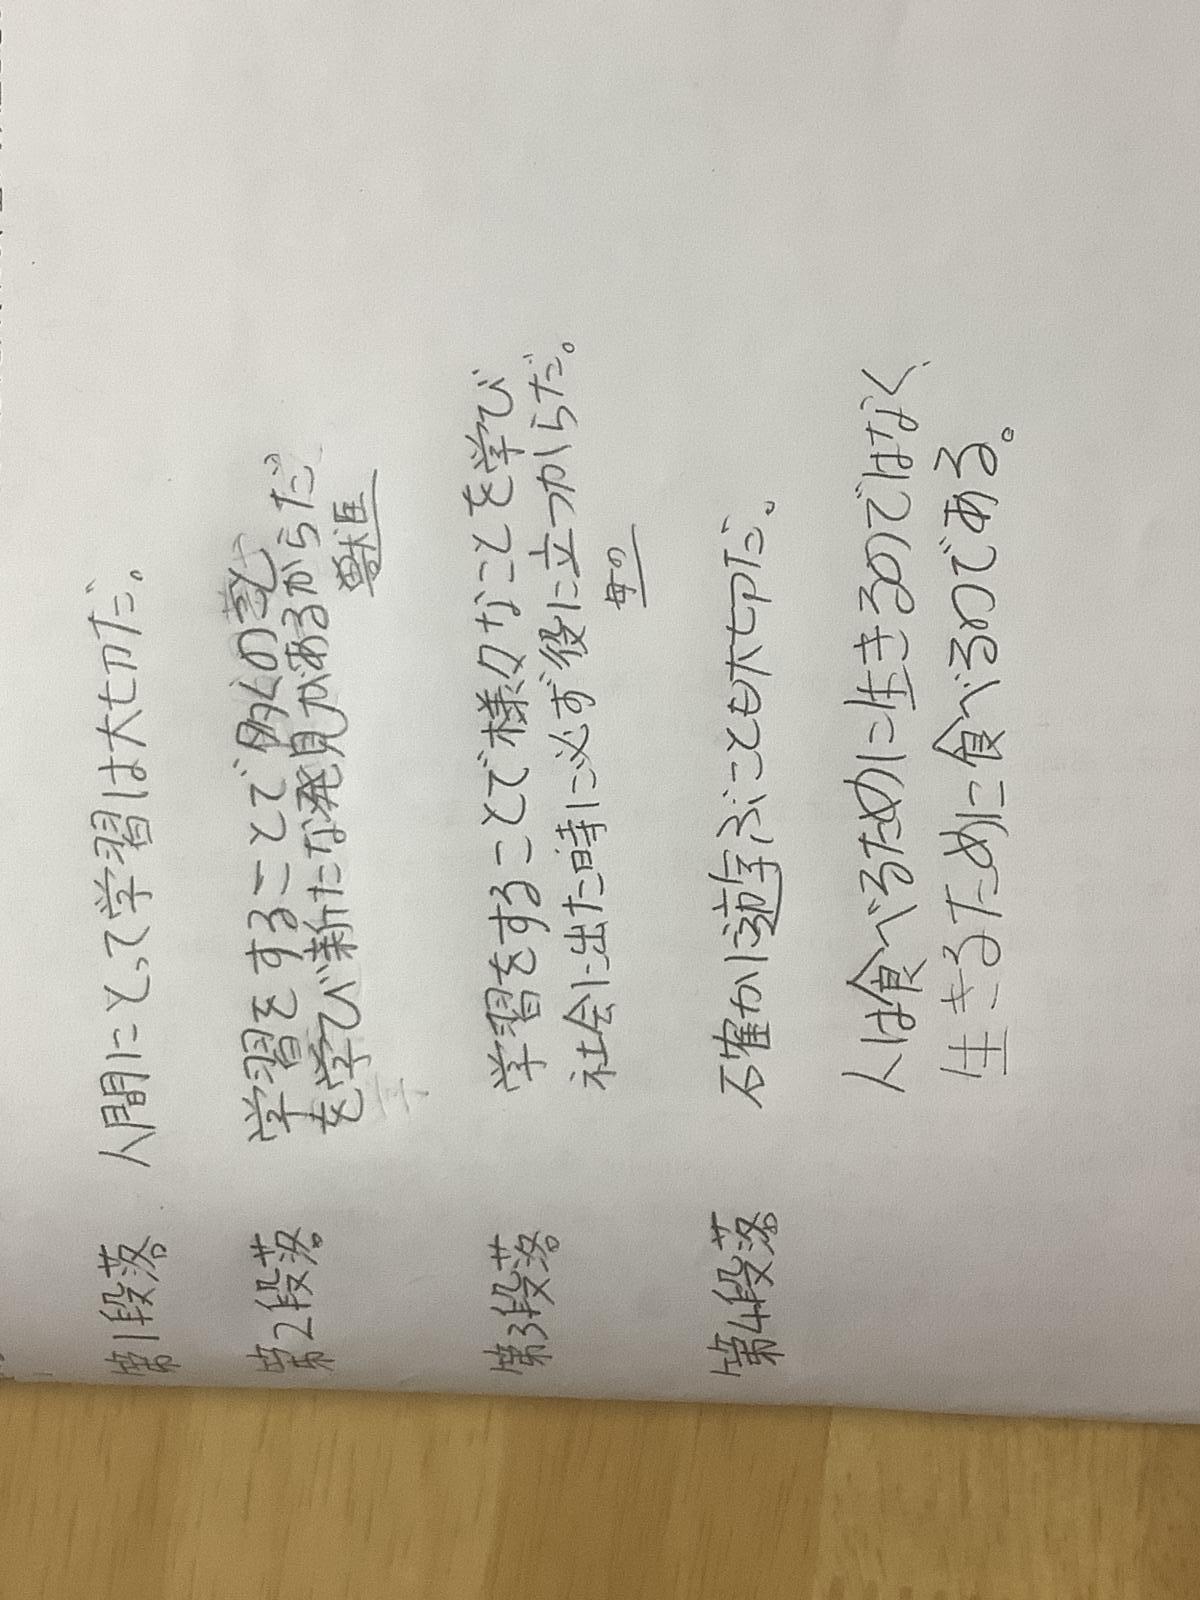 第1段落 人間にとって学習は大切だ。
第2段落 学習をすることで多くの
を学び新たな発見があるからだ
獣医
第3段落 学習をすることで様々なことを学び
社会に出た時に必ず役に立つからだ。
母の
第4段落 確かに遊ぶことも大切だ。
人は食べるために生きるのではなく、
生きるために食べるのである。